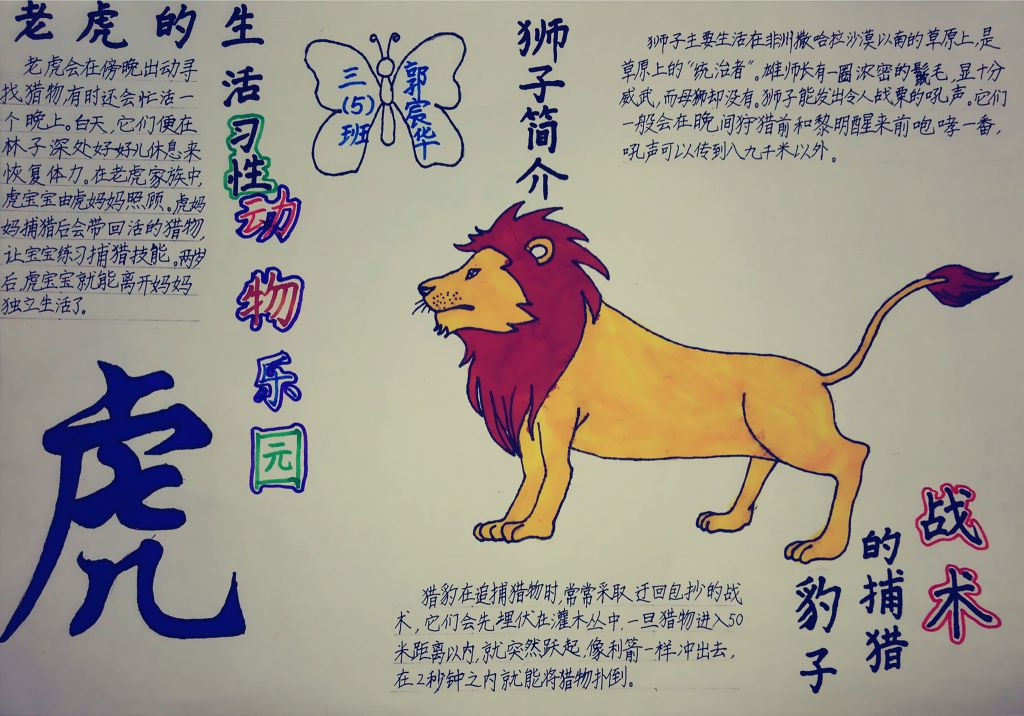 老虎的生
活
习
性
老虎会在傍晚出动寻
找猎物,有时还会忙活一
个晚上。白天,它们便在
林子深处好好儿休息来
恢复体力。在老虎家族中,
虎宝宝由虎妈妈照顾。虎妈
妈捕猎后会带回活的猎物,
让宝宝练习捕猎技能。两岁
后,虎宝宝就能离开妈妈
独立生活了。
三(5)班
郭宸华
动物乐园
虎
狮子简介
狮子主要生活在非洲撒哈拉沙漠以南的草原上,是
草原上的“统治者”。雄师长有一圈浓密的鬣毛,显十分
威武,而母狮却没有。狮子能发出令人战栗的吼声。它们
一般会在晚间狩猎前和黎明醒来前咆哮一番,
吼声可以传到八九千米以外。
豹子
的捕猎
战术
猎豹在追捕猎物时,常常采取迂回包抄的战
术,它们会先埋伏在灌木丛中,一旦猎物进入50
米距离以内,就突然跃起,像利箭一样冲出去,
在2秒钟之内就能将猎物扑倒。